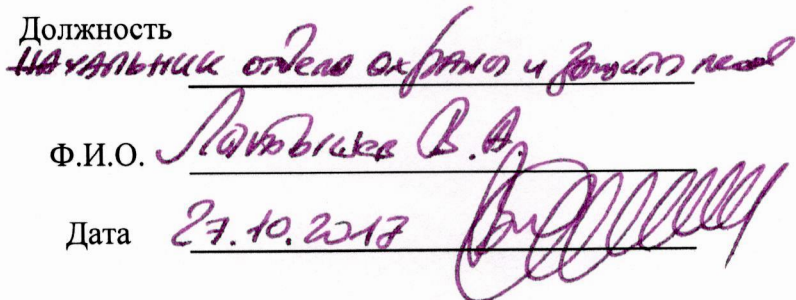 Должность
начальник отдела охраны и защиты лесов
Ф.И.О. В.А.
Дата 27.10.2017